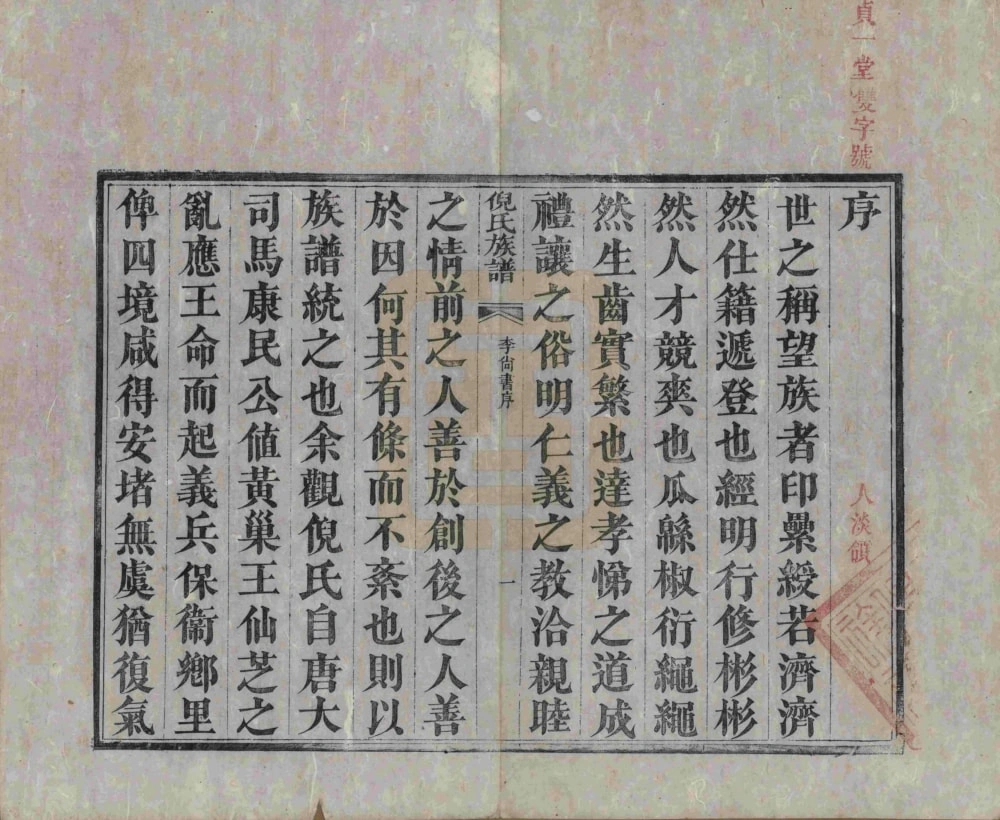 貞一堂雙字號
序
世之稱望族者印纍綬若濟濟
然仕籍遞登也經明行修彬彬
然人才競爽也瓜緜椒衍繩繩
然生齒實繁也達孝悌之道成
禮讓之俗明仁義之教洽親睦
倪氏族譜
李尙書序
一
之情前之人善於創後之人善
於因何其有條而不紊也則以
族譜統之也余觀倪氏自唐大
司馬康民公値黃巢王仙芝之
亂應王命而起義兵保衞鄉里
俾四境咸得安堵無虞猶復氣